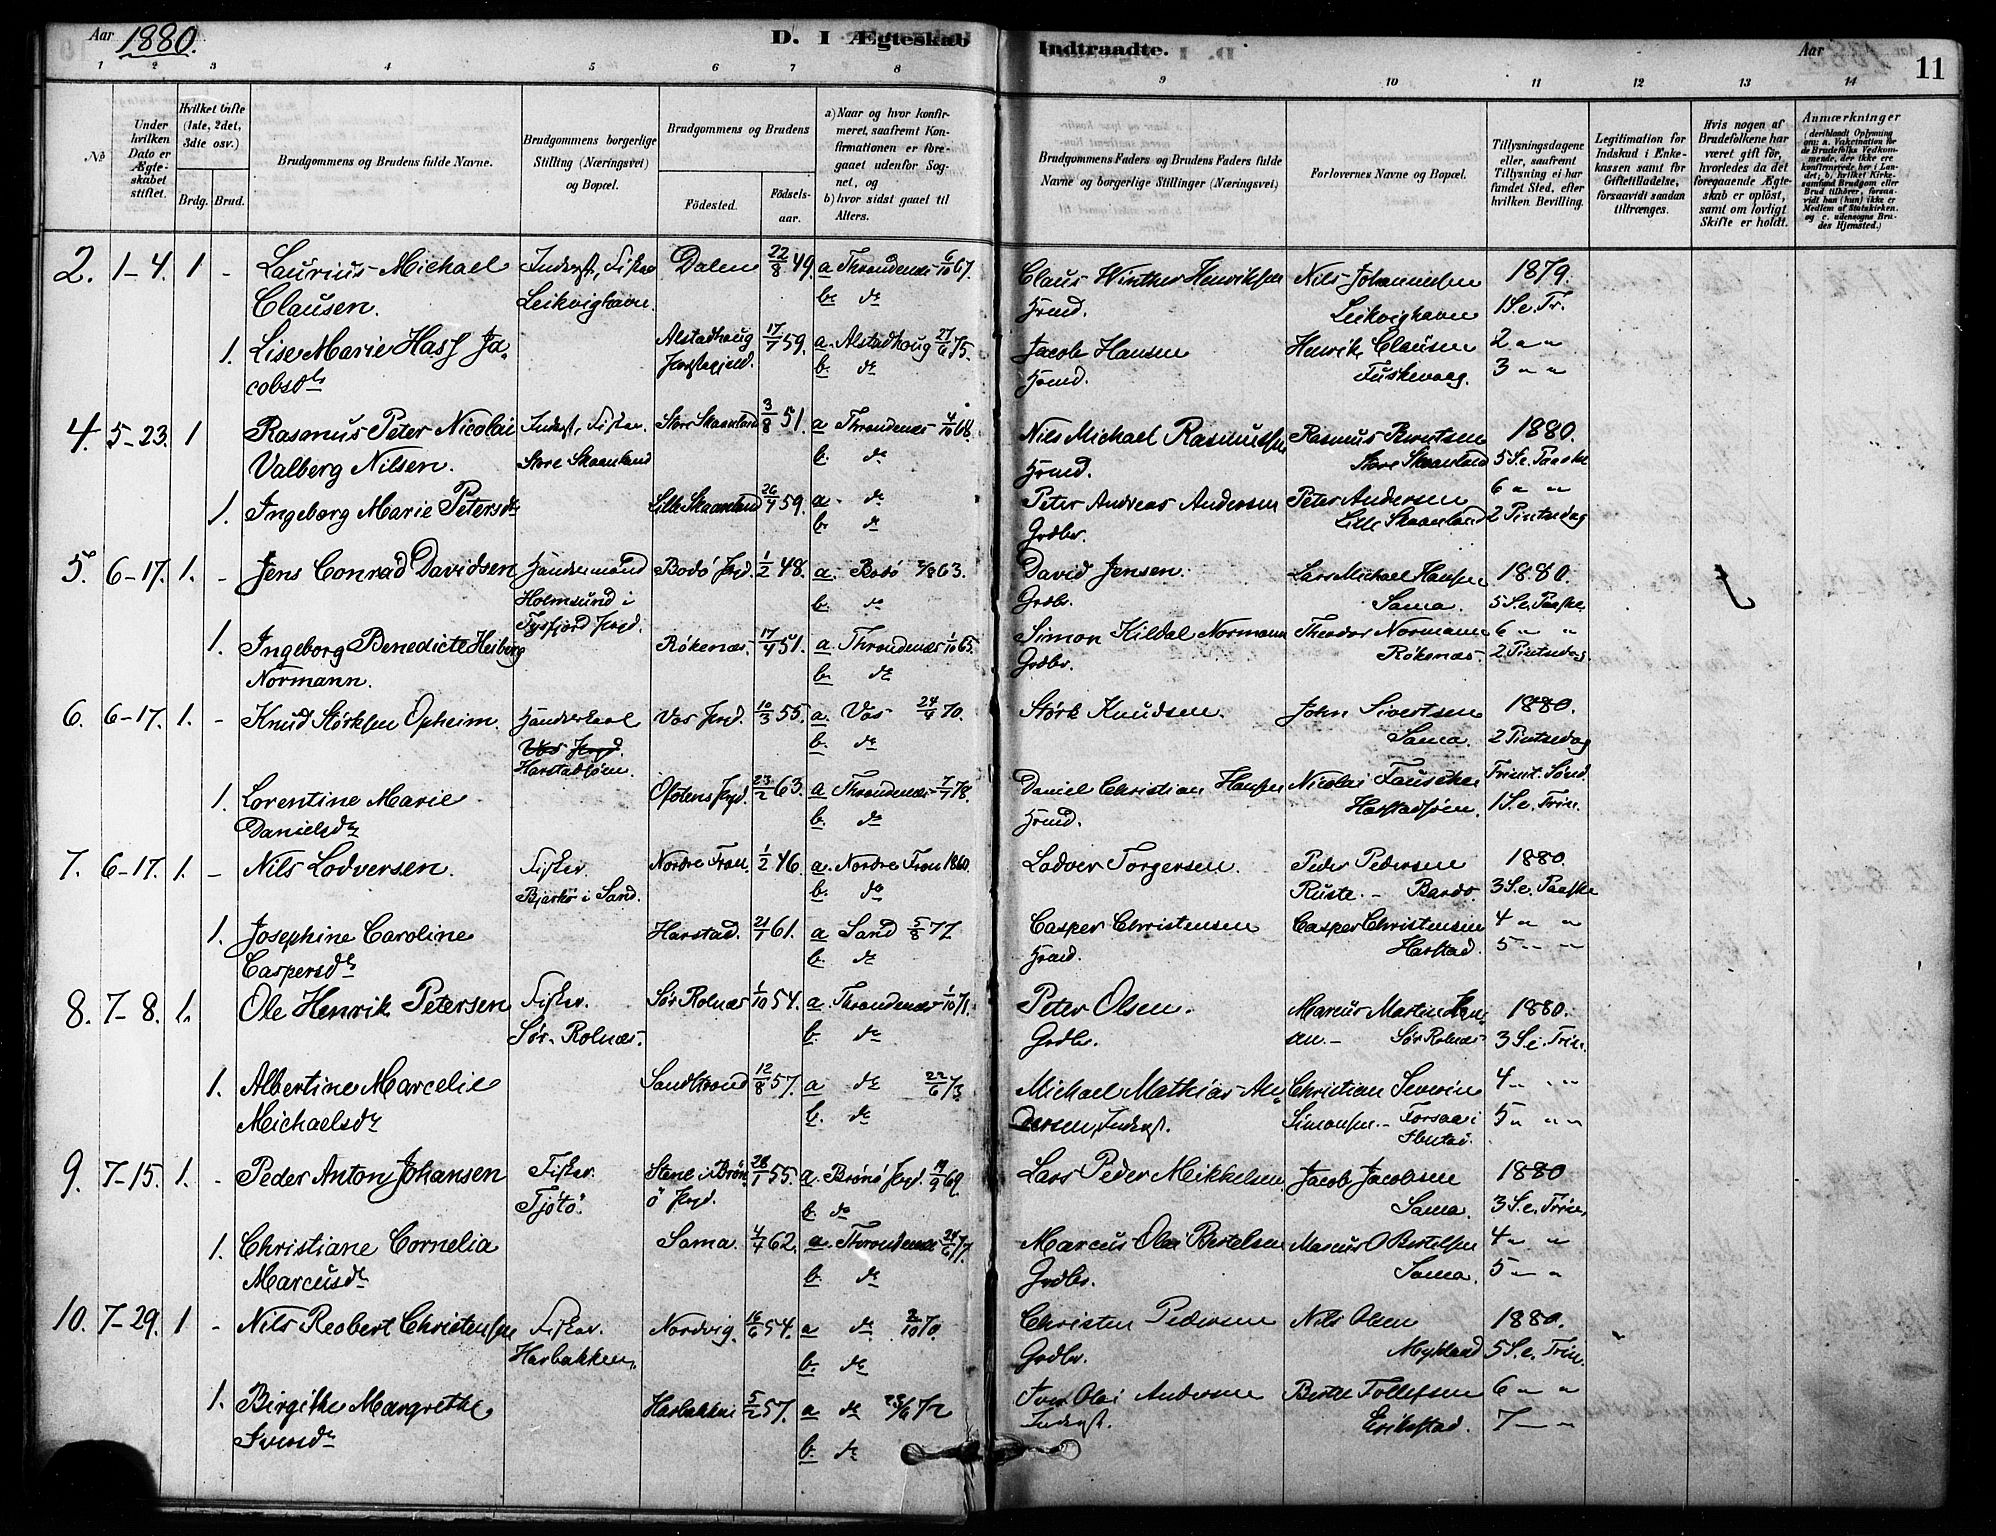 Aar 1880. D. I Ægteskab Indtraadte. Aar 11
1 2 3 4 5 6 7 8 9 10 11 12 13 14
No.
Under hvilken Dato er Ægteskabet stiftet.
Hvilket Gifte (1ste, 2det, 3die osv.)
Brdg. Brud.
Brudgommens og Brudens fulde Navne.
Brudgommens borgerlige Stilling (Næringsvei) og Bopæl.
Brudgommens og Brudens
Födested. Födselsaar.
a) Naar og hvor konfirmeret, saafremt Konfirmationen er foregaaet udenfor Sognet, og
b) hvor sidst gaaet til Alters.
Brudgommens Faders og Brudens Faders fulde Navne og borgerlige Stillinger (Næringsvei)
Forlovernes Navne og Bopæl.
Tillysningsdagene eller, saafremt Tillysning ei har fundet Sted, efter hvilken Bevilling.
Legitimation for Indskud i Enkekassen samt for Giftetilladelse, forsaavidt saadan tiltrænges.
Hvis nogen af Brudefolkene har været gift för, hvorledes da det foregaaende Ægteskab er oplöst, samt om lovligt Skifte er holdt.
Anmærkninger
(deriblandt Oplysning om: a. Vakcination for de Brudefolks Vedkommende, der ikke ere konfirmerede her i Landet; b. hvilket Kirkesamfund Brudgom eller Brud tilhörer, forsaavidt han (hun) ikke er Medlem af Statskirken, og c. udensogns Brudes Hjemsted.)
2. 1-4. 1 - Laurius Michael Inderst, Fisker Dalen 22/8 49. a Throndenes 6/10 67. Claus Winther Henriksen Nils Johannesen 1879.
Clausen. Leikvighavn b. do Hmd. Leikvighavn 1 S. e. Tr.
1. Lise Marie Hass Ja- Alstadhoug 17/7 59. a. Alstadhoug 27/6 75. Jacob Hansen Henrik Clausen 2 " "
cobsdtr b. do Hmd. Fuskevaag. 3 " "
4. 5-23. 1 Rasmus Peter Nicolai Inderst, Fisker. Store Skaanland 3/8 51. a Throndenes 4/10 68. Nils Michael Rasmussen Rasmus Berntsen 1880.
Valberg Nilsen. Store Skaanland b. do Hmd. Store Skaanland 5 S. e. Paaske
1. Ingeborg Marie Petersdtr Lille Skaanland 26/4 59. a. do Peter Andreas Andersen Peter Andersen 6 " "
b. do Grdbr. Lille Skaanland 2 Pintsedag
5. 6-17. 1. - Jens Conrad Davidsen Handelsmand Bodø Prgd. 1/2 48. a. Bodø 63. David Jensen. Lars Michael Hansen 1880.
Holmsund i b. do Grdbr. Sama. 5 S. e. Paaske
Tysfjord Prgd.
1. Ingeborg Benedicte Heiberg Røkenæs. 17/4 51. a. Throndenes 1/10 65. Simon Kildal Normann Theodor Normann 6 " "
Normann. b. do Grdbr. Røkenæs. 2 Pintsedag
6. 6-17. 1. - Knud Størksen Opheim. Vos Prgd. 10/3 55. a. Vos 24/9 70. Størk Knudsen. John Sivertsen 1880.
Vos Prgd. b. do Sama. 2 Pintsedag
Harstadsjøen.
1. Lorentine Marie Ofotens Prgd. 23/2 63. a Throndenes 7/7 78. Daniel Christian Hansen Nicolai Fauschen Trinit. Sønd.
Danielsdtr b. do Hmd. Harstadsjøen. 1 S. e. Trin.
7. 6-17. 1. - Nils Lodversen. Fisker. Nordre Fron. 1/2 46. a. Nordre Fron 1860. Lodver Torgersen. Peder Pedersen 1880.
Bjarkø i Sand. b. do Ruste. - Bardo. 3 S. e. Paaske
1. Josephine Caroline Harstad. 21/7 61. a Sand 5/8 77. Casper Christensen Casper Christensen 4 " "
Caspersdtr b. do Hmd. Harstad. 5 " "
8. 7-8. 1. Ole Henrik Petersen Fisker. Sør Rolnæs 1/10 54. a. Throndenes 1/10 71. Peter Olsen. Marcus Martin 1880.
Sør-Rolnæs. b. do Grdbr. Sør Rolnæs 3 S. e. Trin.
1. Albertine Marcelie Sandstrand 12/8 57. a do 22/6 73 Michael Mathias An- Christian Severin 4 " "
Michaelsdtr b. do dersen, Inderst. Simonsen - Forsaa i 5 " "
Ibestad.
9. 7-15. 1. - Peder Anton Johansen Fisker. Stene i Brøn- 28/1 55. a. Brønø Prgd. 19/9 69. Lars Peder Mikkelsen. Jacob Jacobsen 1880
Tjøtø. ø Prgd. b. do Sama. 3 S. e. Trin.
1. Christiane Cornelia Sama. 4/4 62. a. Throndenes 24/6 77. Marcus Olai Bertelsen Marcus O Bertelsen 4 " "
Marcusdtr b. do Grdbr. Sama. 5 " "
10. 7-29. 1 - Nils Reobert Christensen Fisker. Nordvig. 16/6 54. a do 2/10 70. Christen Pedersen Nils Olsen 1880.
Harbakken. b. do Grdbr. Mykland 5 S. e. Trin.
1. Birgithe Margrethe Harbakken 5/2 57. a do 23/6 72 Iver Olai Andersen Bertel Tollefsen 6 " "
Iversdtr b. do Inderst. Erikstad. 7 " "